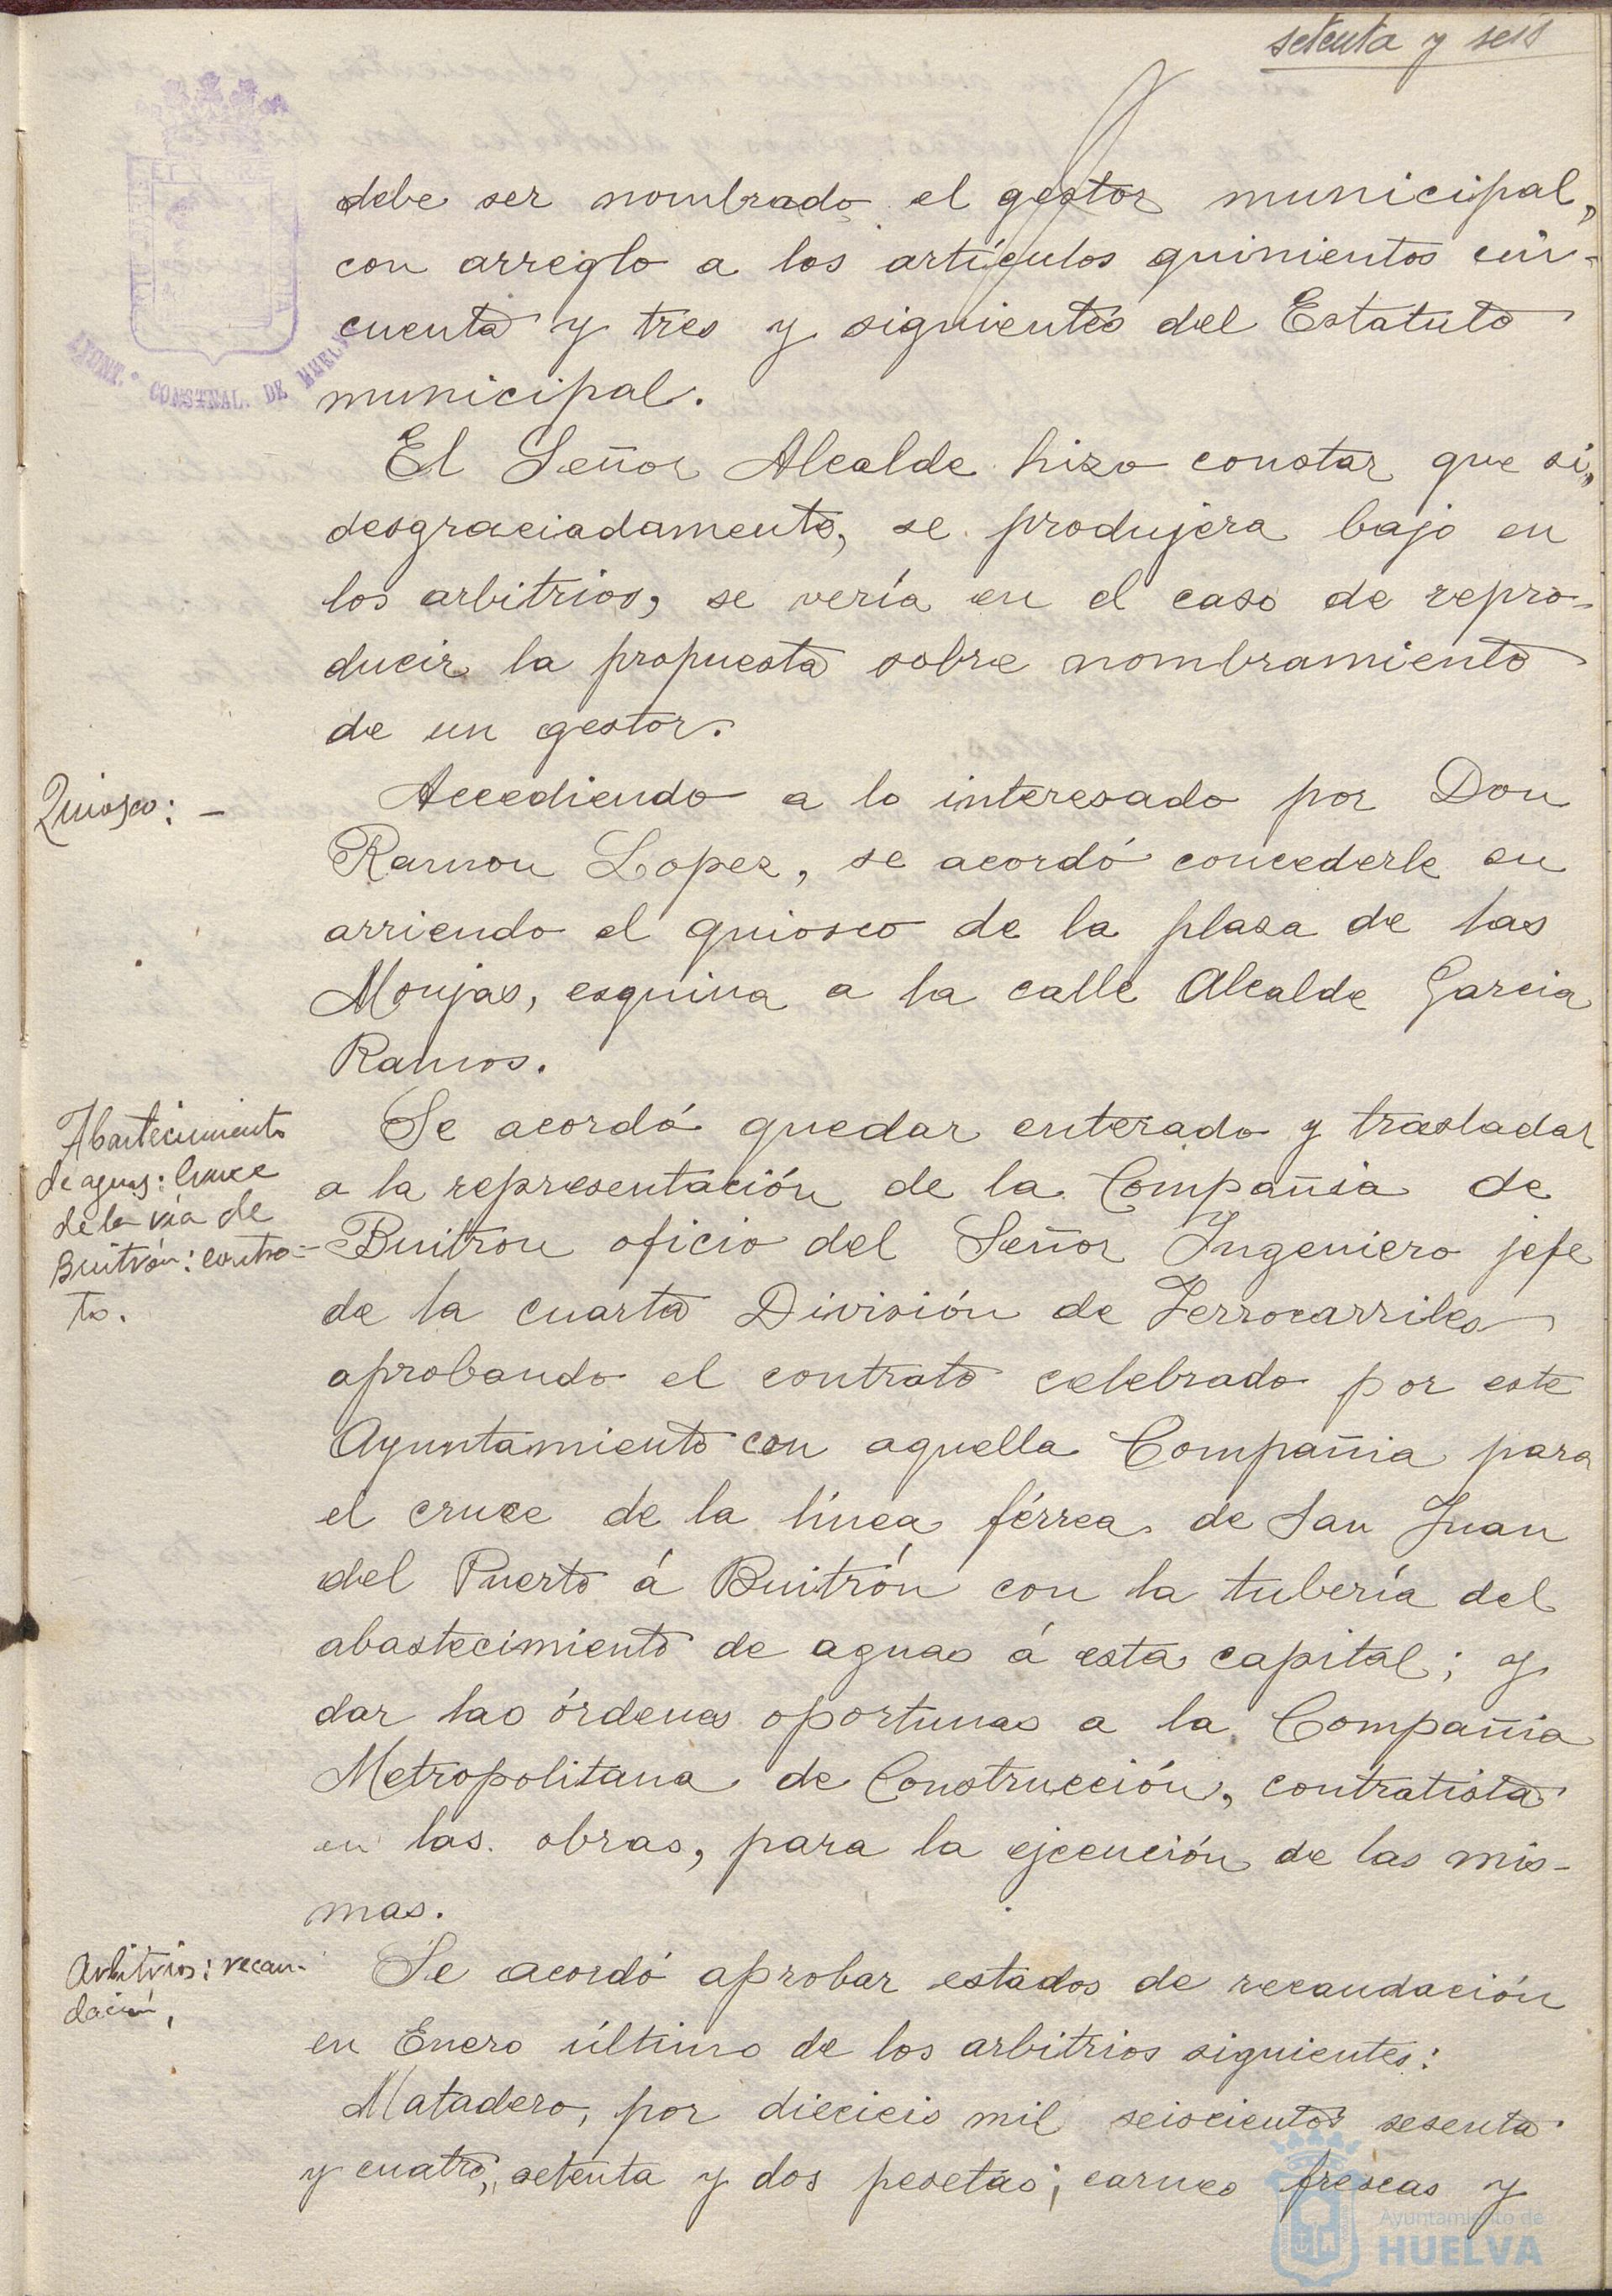 setenta y seis
debe ser nombrado el gestor municipal,
con arreglo a los artículos quinientos cin-
cuenta y tres y siguientes del Estatuto
municipal.
AYUNT.º CONSTNAL. DE HUELVA
El Señor Alcalde hizo constar que si,
desgraciadamente, se produjera baja en
los arbitrios, se vería en el caso de repro-
ducir la propuesta sobre nombramiento
de un gestor.
Quiosco: -
Accediendo a lo interesado por Don
Ramon Lopez, se acordó concederle en
arriendo el quiosco de la plaza de las
Monjas, esquina a la calle Alcalde Garcia
Ramos.
Abastecimiento
de aguas: cruce
de la vía de
Buitrón: contra-
to.
Se acordó quedar enterado y trasladar
a la representación de la Compañia de
Buitron oficio del Señor Ingeniero jefe
de la cuarta División de Ferrocarriles
aprobando el contrato celebrado por este
Ayuntamiento con aquella Compañia para
el cruce de la línea férrea de San Juan
del Puerto á Buitrón con la tubería del
abastecimiento de aguas á esta capital; y
dar las órdenes oportunas a la Compañia
Metropolitana de Construcción, contratista
en las obras, para la ejecución de las mis-
mas.
Arbitrios: recau-
dación,
Se acordó aprobar estados de recaudación
en Enero último de los arbitrios siguientes:
Matadero, por diecieis mil seiscientos sesenta
y cuatro, setenta y dos pesetas; carnes frescas y
Ayuntamiento de
HUELVA